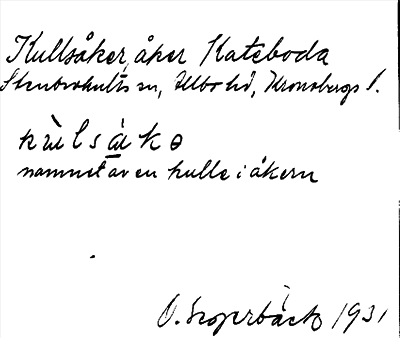 Kullsåker, åker Kateboda
Stenbrohults sn, Allbo hd, Kronobergs l.
kùlsåkə
namnet av en kulle i åkern
O. 1931